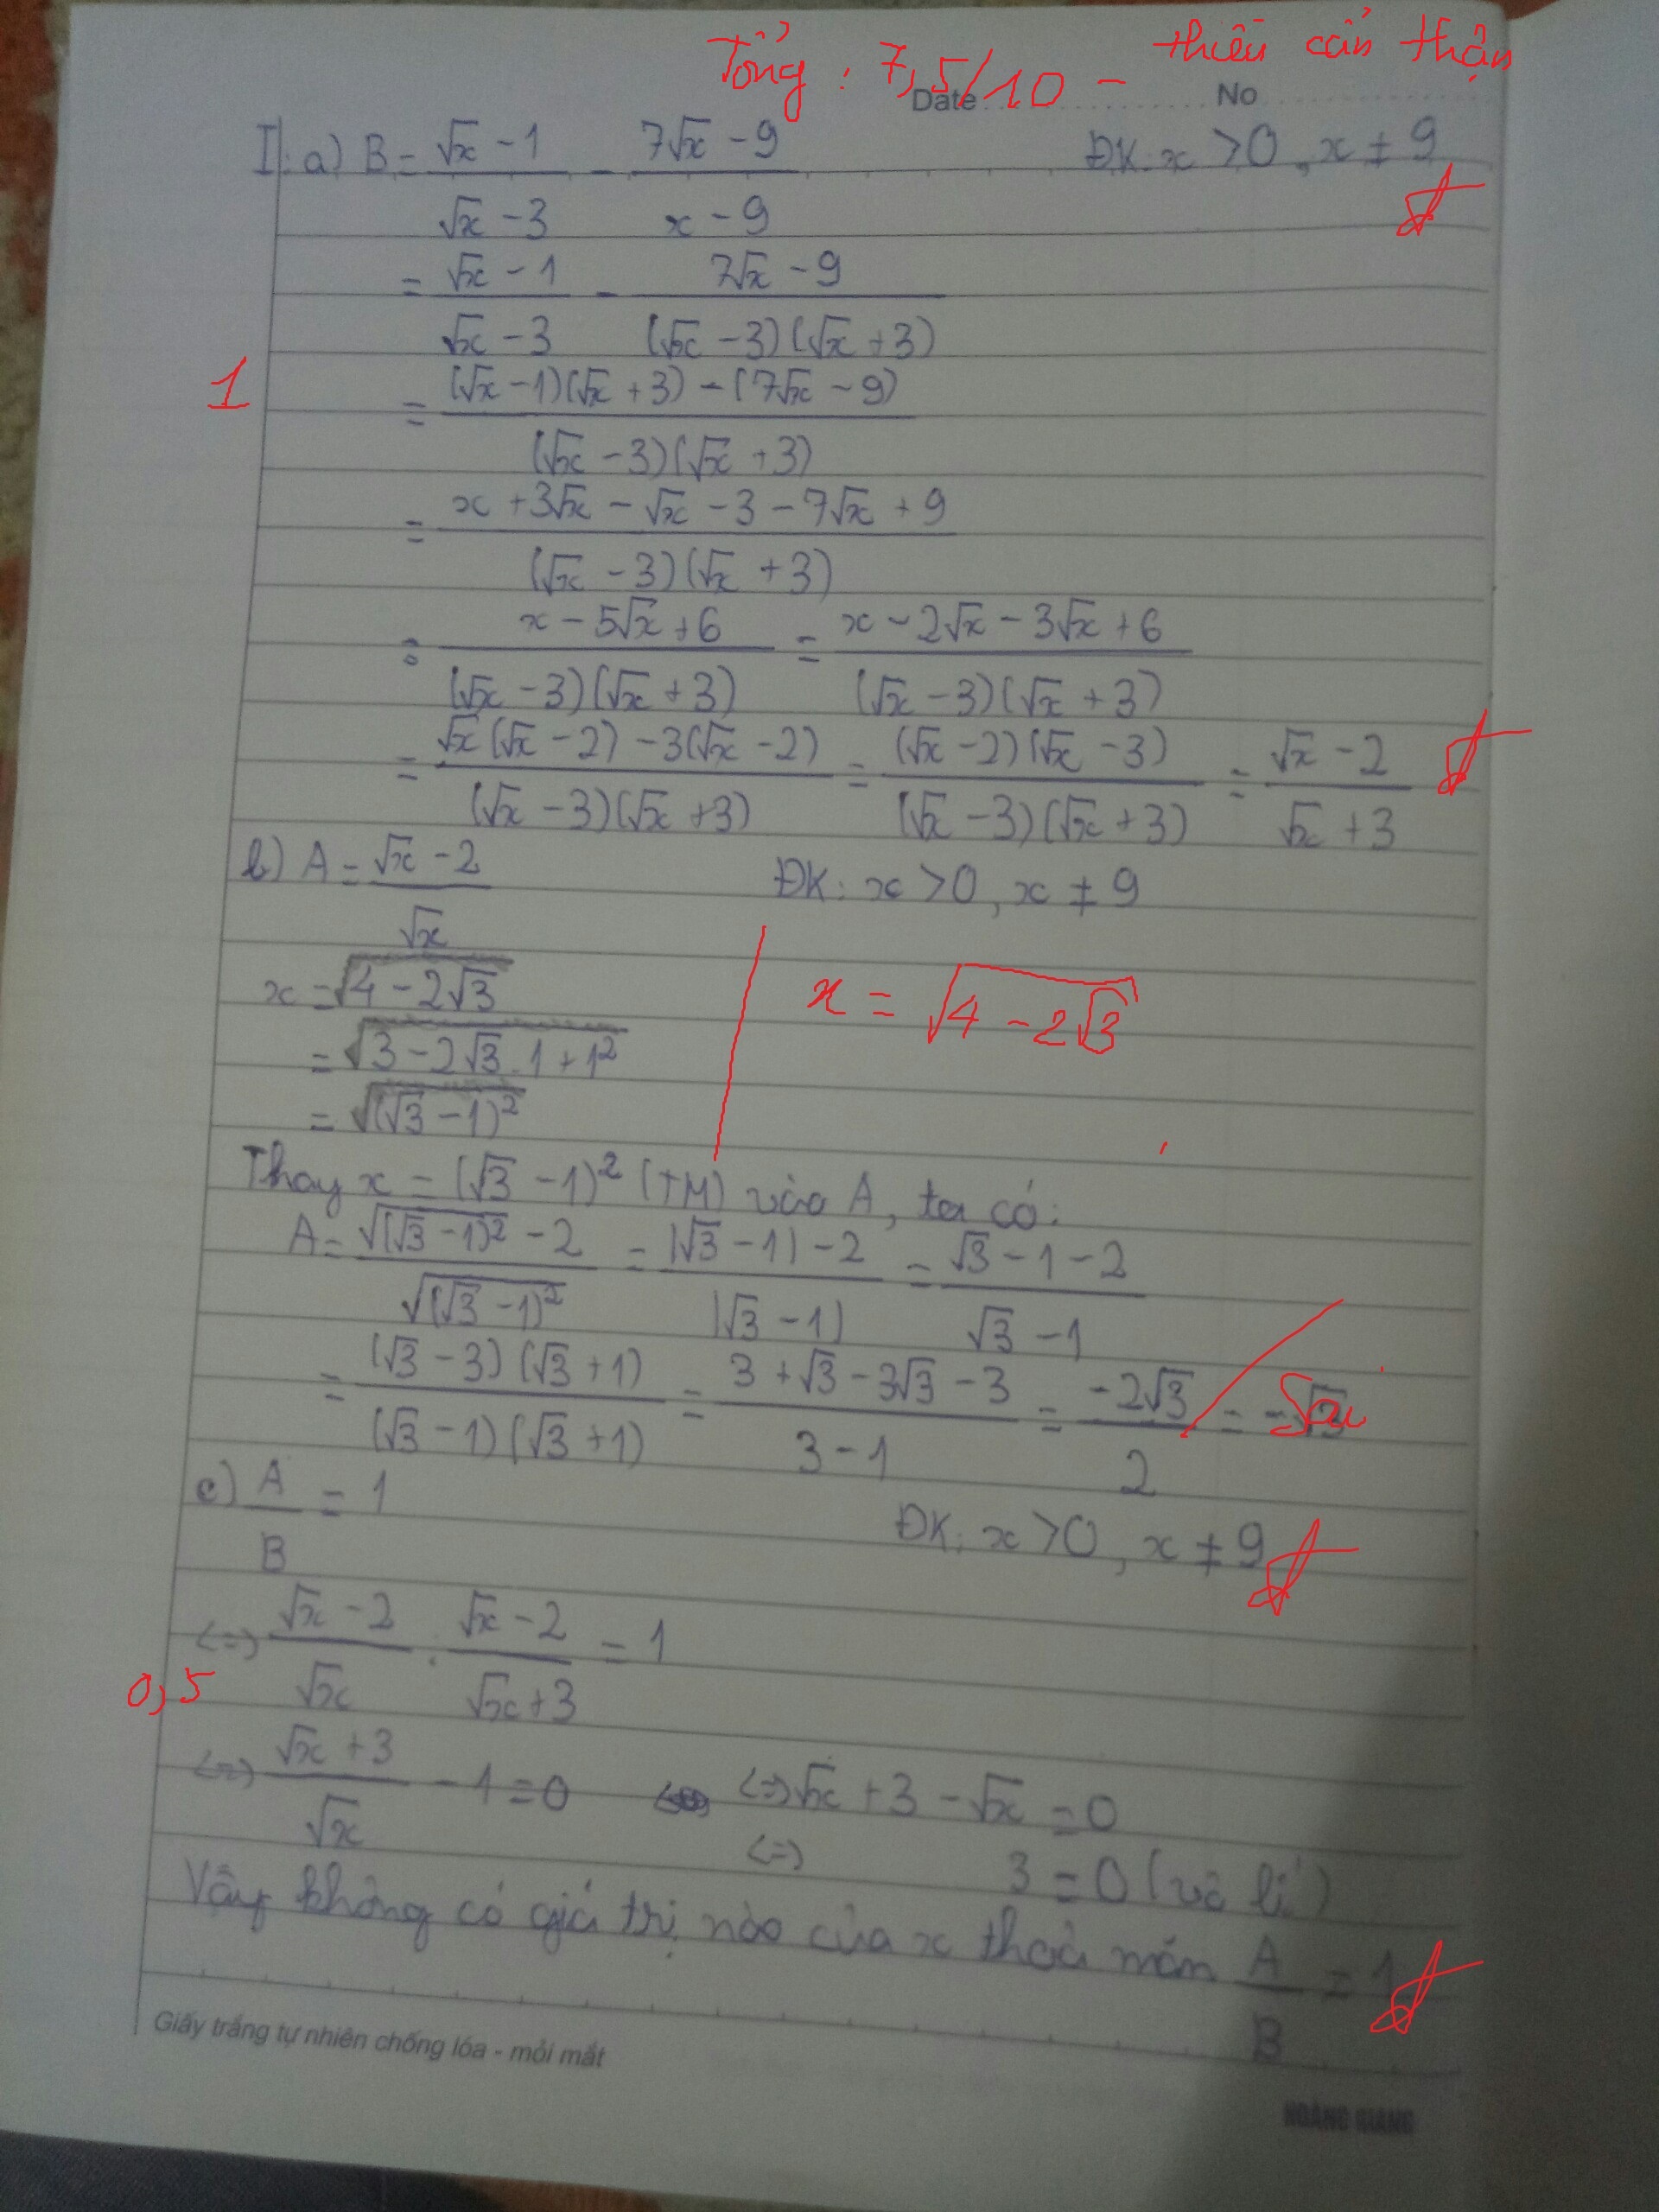 Tổng : 7,5/10 - thiếu cẩn thận
Date No
I: a) B = (√x - 1)/(√x - 3) - (7√x - 9)/(x - 9) ĐK: x > 0, x ≠ 9
= (√x - 1)/(√x - 3) - (7√x - 9)/((√x - 3)(√x + 3))
1
= ((√x - 1)(√x + 3) - (7√x - 9))/((√x - 3)(√x + 3))
= (x + 3√x - √x - 3 - 7√x + 9)/((√x - 3)(√x + 3))
= (x - 5√x + 6)/((√x - 3)(√x + 3)) = (x - 2√x - 3√x + 6)/((√x - 3)(√x + 3))
= (√x(√x - 2) - 3(√x - 2))/((√x - 3)(√x + 3)) = ((√x - 2)(√x - 3))/((√x - 3)(√x + 3)) = (√x - 2)/(√x + 3)
b) A = (√x - 2)/√x ĐK: x > 0, x ≠ 9
x = √(4 - 2√3) x = √(4 - 2√3)
= √(3 - 2√3 . 1 + 1²)
= √((√3 - 1)²)
Thay x = (√3 - 1)² (TM) vào A, ta có:
A = (√((√3 - 1)²) - 2)/√((√3 - 1)²) = (|√3 - 1| - 2)/|√3 - 1| = (√3 - 1 - 2)/(√3 - 1)
= ((√3 - 3)(√3 + 1))/((√3 - 1)(√3 + 1)) = (3 + √3 - 3√3 - 3)/(3 - 1) = (-2√3)/2 = -√3 Sai
c) A/B = 1 ĐK: x > 0, x ≠ 9
<=> (√x - 2)/√x : (√x - 2)/(√x + 3) = 1
0,5
<=> (√x + 3)/√x - 1 = 0 <=> √x + 3 - √x = 0
<=> 3 = 0 (vô lí)
Vậy không có giá trị nào của x thoả mãn A/B = 1
Giấy trắng tự nhiên chống lóa - mỏi mắt
HOÀNG GIANG